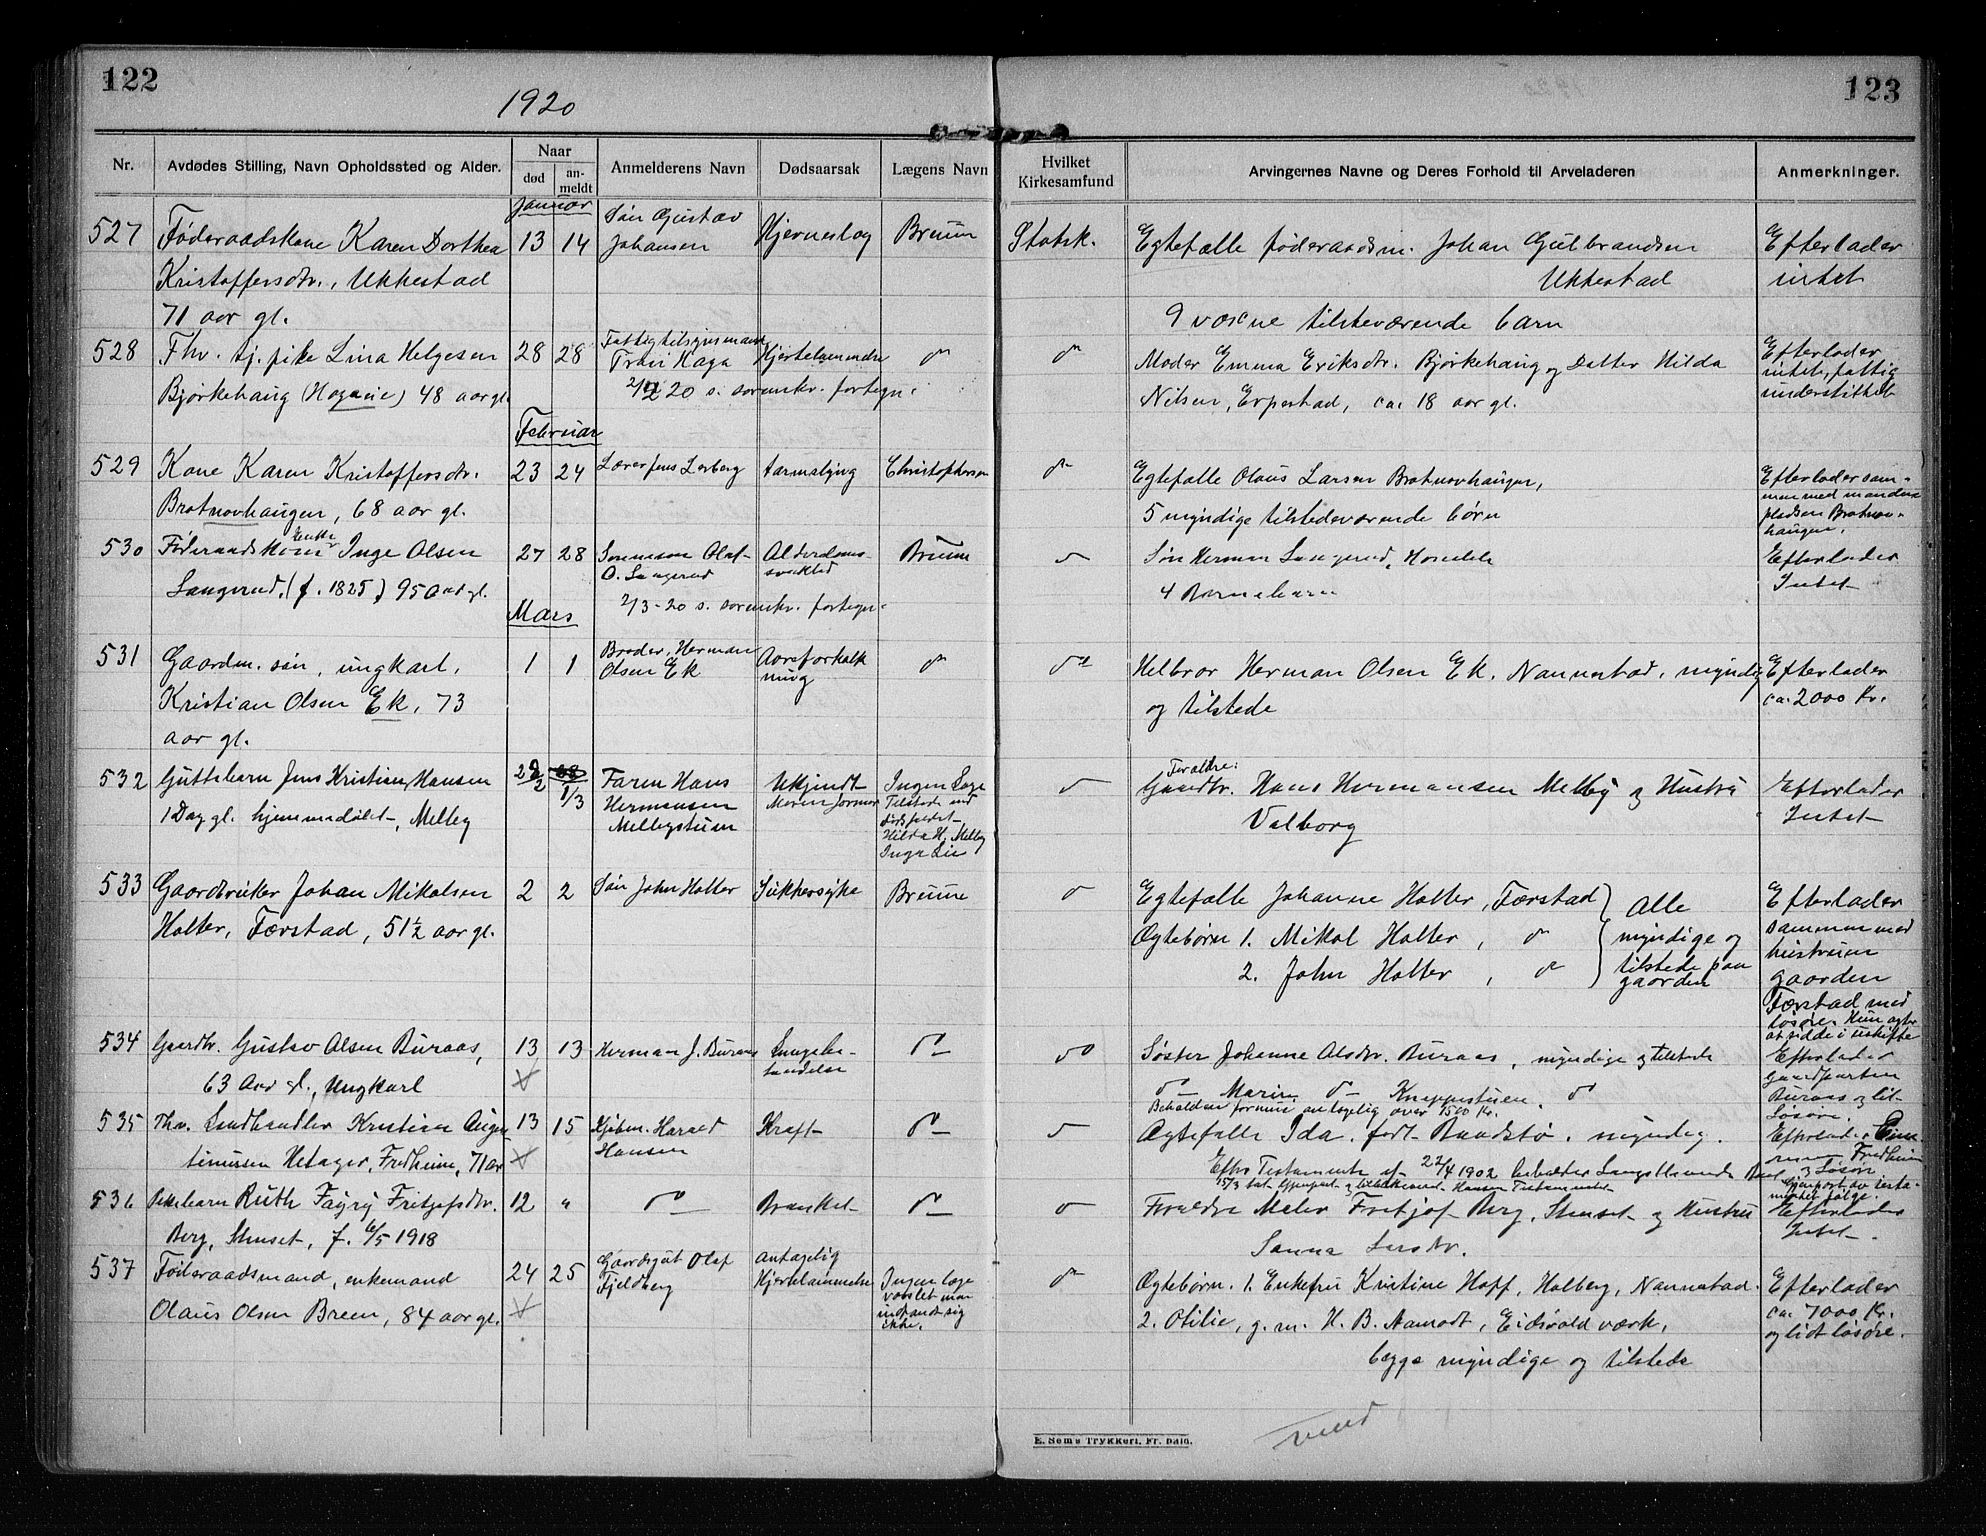 122
1920
123
Nr.
Avdødes Stilling, Navn Opholdssted og Alder.
Naar
død
an-
meldt
Anmelderens Navn
Dødsaarsak
Lægens Navn
Hvilket
Kirkesamfund
Arvingernes Navne og Deres Forhold til Arveladeren
Anmerkninger.
Januar
527
Føderaadskone Karen Dorthea
Kristoffersdtr., Ukkestad
71 aar gl.
13
14
Søn Gustav
Johansen
Hjerneslag
Bruun
Statsk.
Egtefælle føderaadsm. Johan Gulbrandsen
Ukkestad
9 voxne tilsteværende barn
Efterlader
intet
528
Fhv. tj. pike Lina Helgesen
Bjørkehaug (Hogasie) 48 aar gl.
28
28
Fattigtilsynsmand
Haga
Hjertelammelse
2/2 20 s. sorenskr. fortegn.
Moder Emma Eriksdtr. Bjørkehaug og Datter Hilda
Nilsen, Erpestad, ca. 18 aar gl.
Efterlader
intet, fattig
understøttet
Februar
529
Kone Karen Kristoffersdtr.
Bratnovhaugen, 68 aar gl.
23
24
Lærer Jens Lerberg
tarmslyng
Christophersen
Egtefælle Olaus Larsen Bratnovhaugen,
5 myndige tilstedeværende børn
Efterlader sam-
men med manden
pladsen Bratnov-
haugen.
530
Føderaadskone Enke Inge Olsen
Langerud, (f. 1825) 95 Aar gl.
27
28
Sønnesøn Olaf
O. Langerud
Alderdoms-
svakhed
Bruun
2/3-20 s. sorenskr. fortegn.
Søn Herman Langerud,
4 Barnebarn
Efterlader
Intet
Mars
531
Gaardm. søn, ungkarl,
Kristian Olsen Ek, 73
aar gl.
1
1
Broder, Herman
Olsen Ek
Aareforkalk
ning
Helbror Herman Olsen Ek, Nannestad, myndig
og tilstede
Efterlader
ca. 2000 Kr.
532
Guttebarn Jens Kristian Hansen
1 Dag gl. hjemmedøbt, Melby
29/2
1/3
Faren Hans
Hermansen
Melbystuen
Ukjendt
Ingen Læge
Tilstede ved
Hilda H. Melby
Inga Lie
Foraldre:
Gaardbr. Hans Hermansen Melby og Hustru
Valborg
Efterlader
Intet
533
Gaardbruker Johan Mikalsen
Holter, Færstad, 51½ aar gl.
2
2
Søn John Holter
Sukkersyke
Bruun
Egtefælle Johanne Holter, Færstad
Ægtebørn 1. Mikal Holter,
2. John Holter,
Alle
myndige og
tilstede paa
gaarden
Efterlader
sammen med
hustruen
gaarden
Færstad med
løsøre. Hun agter
at sidde i uskifte
534
Gaardbr. Gustav Olsen Buraas,
63 Aar gl., Ungkarl
13
13
Herman J. Buraas
Lungebe-
tændelse
Søster Johanne Olsdtr. Buraas, myndige og tilstede
Marin Knappestuen.
Beholden formue antagelig over 1500 Kr.
Efterlader
Gaardparten
Buraas og lit
Løsøre.
535
Fhv. Landhandler Kristian Augus-
tinussen Hetager, Fredheim, 71 aar
13
15
Kjøbm. Harald
Hansen
Kræft
Ægtefælle Ida, født Bandstø, myndig.
Efter Testamente af 22/4 1902
Efterlader Eien-
Fredheim
og Løsøre
536
Pikebarn Ruth Fayry Fritjofsdtr.
Berg, Stenset, f. 6/5 1918
12
"
Forældre Maler Fritjof Berg, Stenset og Hustru
Sanna Larsdtr.
Efterlader
Intet
537
Føderaadsmand, enkemand
Olaus Olsen Breen, 84 aar gl.
24
25
Gaardsgut Olaf
Fjeldberg
antagelig
Hjertelammelse
Ingen læge
varslet man
indfandt sig
ikke.
Ægtebørn. 1. Enkefru Kristine Hoff, Holberg, Nannestad.
2. Otilie, g. m. H. B. Aamodt, Eidsvold værk,
begge myndige og tilstede
Efterlader
ca. 7000 Kr.
og lidt løsøre.
E. Sem's Trykkeri, Fr. hald.
vend